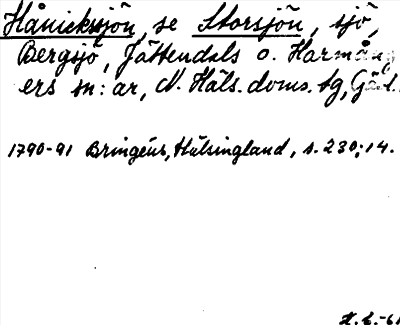 Hånicksjön, se Storsjön, sjö,
Bergsjö, Jättendals o. Harmång
ers sn:ar, N. Häls. doms. tg, Gävl.
1790-91 Bringéus, Hälsingland, s. 230; 14.